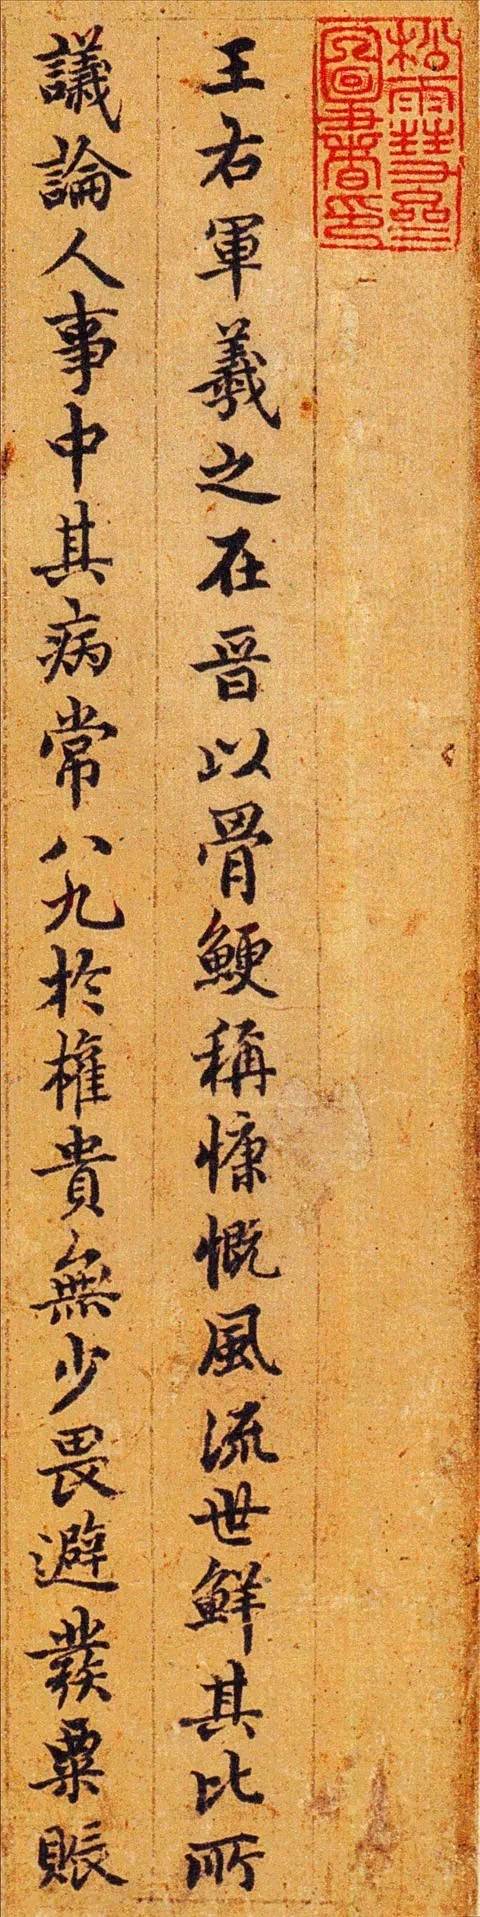 王右軍羲之在晉以骨鯁稱慷慨風流世鮮其比所
議論人事中其病常八九於權貴無少畏避發粟賑